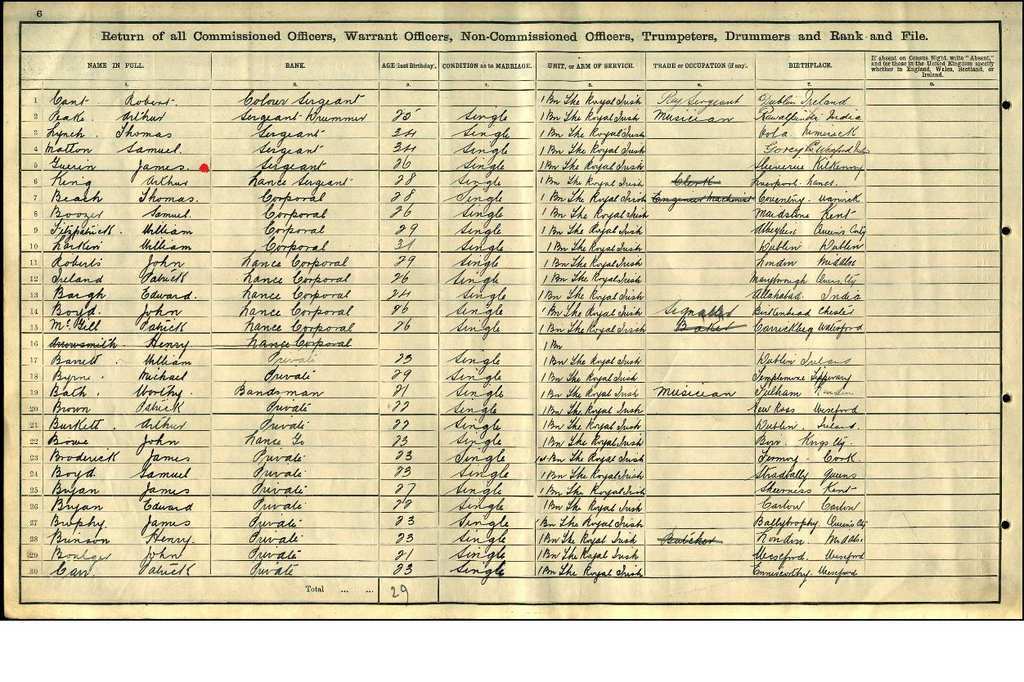 6
Return of all Commissioned Officers, Warrant Officers, Non-Commissioned Officers, Trumpeters, Drummers and Rank and File.
NAME IN FULL. RANK. AGE (last Birthday). CONDITION as to MARRIAGE. UNIT, or ARM OF SERVICE. TRADE or OCCUPATION (if any). BIRTHPLACE. If absent on Census Night, write "Absent," and (or those in the United Kingdom) specify whether in England, Wales, Scotland, or Ireland.
1. 2. 3. 4. 5. 6. 7. 8.
1 Cant Robert. Colour Sergeant 1 Bn The Royal Irish Pay Sergeant Dublin Ireland
2 Peake Arthur Sergeant Drummer 25 Single 1 Bn The Royal Irish Musician India
3 Lynch Thomas Sergeant 24 Single 1 Bn The Royal Irish Oola Limerick
4 Matton Samuel. Sergeant 34 Single 1 Bn The Royal Irish Gorey
5 Guerin James. Sergeant 26 Single 1 Bn The Royal Irish Kilkenny
6 King Arthur Lance Sergeant 28 Single 1 Bn The Royal Irish Clerk Liverpool Lancs.
7 Beach Thomas. Corporal 28 Single 1 Bn The Royal Irish Engineer Machinist Coventry Warwick
8 Boozer Samuel. Corporal 26 Single 1 Bn The Royal Irish Maidstone Kent
9 Fitzpatrick William Corporal 29 Single 1 Bn The Royal Irish Queens Cty
10 Larkin William Corporal 31 Single 1 Bn The Royal Irish Dublin Dublin
11 Roberts John Lance Corporal 29 Single 1 Bn The Royal Irish London Middlx
12 Ireland Patrick Lance Corporal 26 Single 1 Bn The Royal Irish Maryborough Queens Cty
13 Bargh Edward. Lance Corporal 24 Single 1 Bn The Royal Irish Allahabad India
14 Boyd John Lance Corporal 26 Single 1 Bn The Royal Irish Signaller Birkenhead Chester
15 McGill Patrick Lance Corporal 26 Single 1 Bn The Royal Irish Baker Carrickbeg Waterford
16 Arrowsmith Henry Lance Corporal 1 Bn
17 Barrett William Private 23 Single 1 Bn The Royal Irish Dublin Ireland
18 Byrne Michael Private 29 Single 1 Bn The Royal Irish Templemore Tipperary
19 Bath Worthy. Bandsman 21 Single 1 Bn The Royal Irish Musician Fulham London
20 Brown Patrick Private 22 Single 1 Bn The Royal Irish New Ross Wexford
21 Burkett Arthur Private 22 Single 1 Bn The Royal Irish Dublin Ireland
22 Bowe John Lance Cr 23 Single 1 Bn The Royal Irish Birr Kings Cty.
23 Broderick James Private 23 Single 1 Bn The Royal Irish Fermoy Cork
24 Boyd Samuel Private 23 Single 1 Bn The Royal Irish Stradbally Queens
25 Bryan James Private 27 Single 1 Bn The Royal Irish Sheerness Kent
26 Bryan Edward Private 22 Single 1 Bn The Royal Irish Carlow Carlow
27 Brophy James Private 23 Single 1 Bn The Royal Irish Ballybrophy Queens Cty
28 Bunson Henry Private 23 Single 1 Bn The Royal Irish Butcher London Middlx.
29 Boulger John Private 21 Single 1 Bn The Royal Irish Wexford Wexford
30 Carr Patrick Private 23 Single 1 Bn The Royal Irish Enniscorthy Wexford
Total ... ... 29